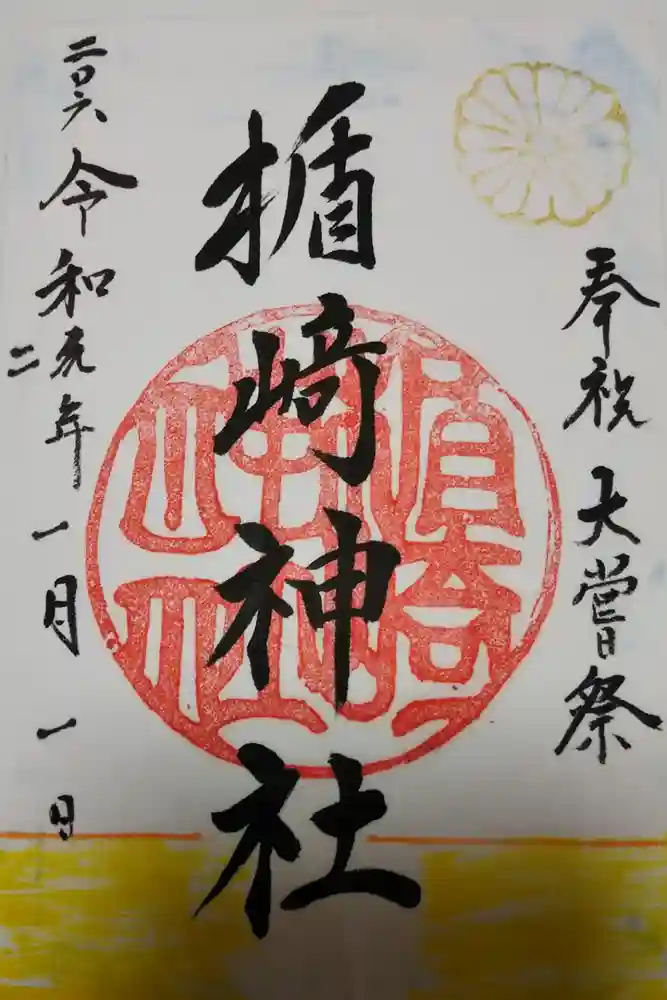 奉祝 大嘗祭
楯﨑神社
二〇六 令和元年 一月 一日
二
楯崎
神社